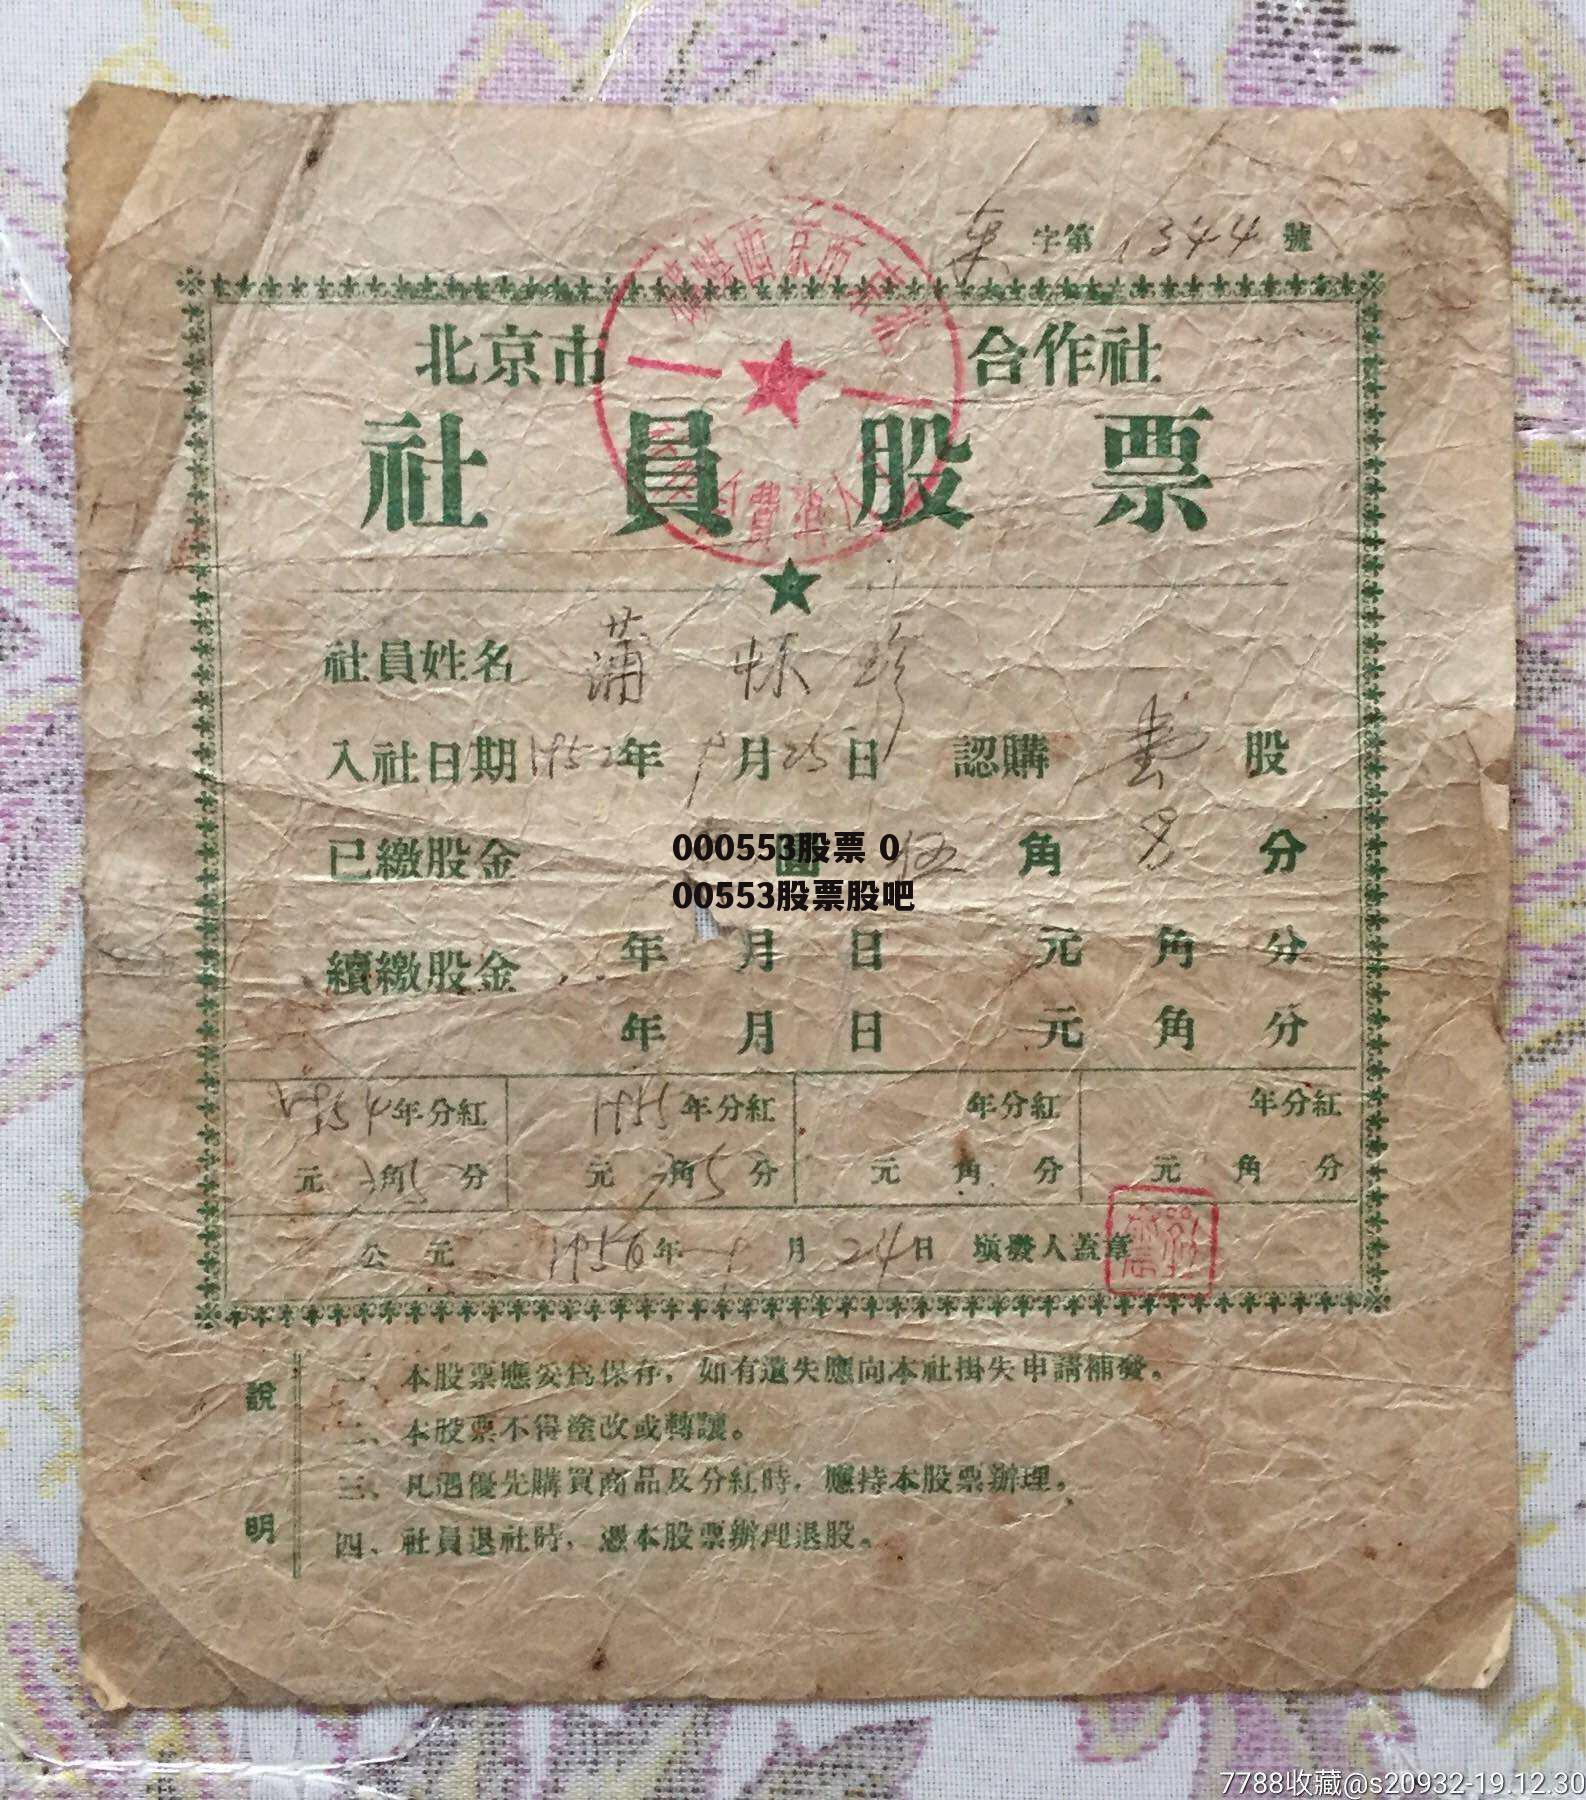 字第 1344 號
北京市 合作社
社員股票
社員姓名 蒲
入社日期 1952年 9月25日 認購 壹 股
已繳股金 圓 伍 角 分
000553股票 0
00553股票股吧
續繳股金 年 月 日 元 角 分
年 月 日 元 角 分
1954年分紅 1955年分紅 年分紅 年分紅
元 角5分 元 角5分 元 角 分 元 角 分
公元 1956年 9月 24日 填發人蓋章
說明
一、本股票應妥為保存，如有遺失應向本社掛失申請補發。
二、本股票不得塗改或轉讓。
三、凡遇優先購買商品及分紅時，應持本股票辦理。
四、社員退社時，憑本股票辦理退股。
7788收藏@s20932-19.12.30